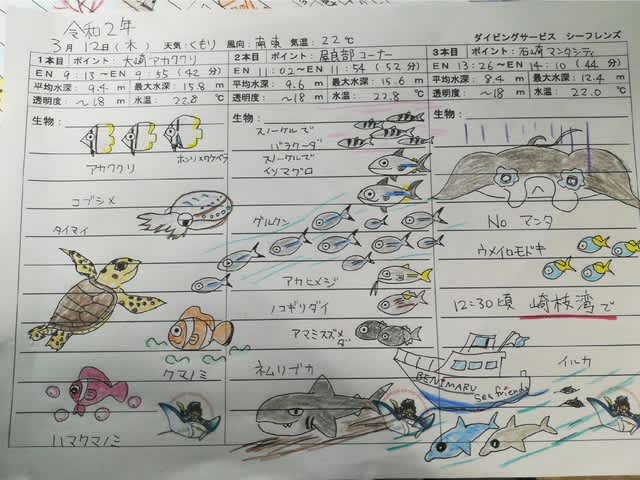 令和2年
3月12日(木) 天気:くもり 風向:南東 気温:22℃ ダイビングサービス シーフレンズ
1本目 ポイント:大崎アカククリ
EN 9:13～EN 9:55 (42分)
平均水深: 9.4 m 最大水深: 15.8 m
透明度: ～18 m 水温: 22.8 ℃
生物:
アカククリ
コブシメ
タイマイ
クマノミ
ハマクマノミ
2本目 ポイント:屋良部コーナー
EN 11:02～EN 11:54 (52分)
平均水深: 9.6 m 最大水深: 15.6 m
透明度: ～18 m 水温: 22.8 ℃
生物:
スノーケルで
バラクーダ
スノーケルで
イソマグロ
グルクン
アカヒメジ
ノコギリダイ
アマミスズメダ
ネムリブカ
3本目 ポイント:石崎マンタシティ
EN 13:26～EN 14:10 (44分)
平均水深: 8.4 m 最大水深: 12.4 m
透明度: ～18 m 水温: 22.0 ℃
生物:
No マンタ
ウメイロモドキ
12:30頃 崎枝湾で
イルカ
BENIMARU
Sea friends